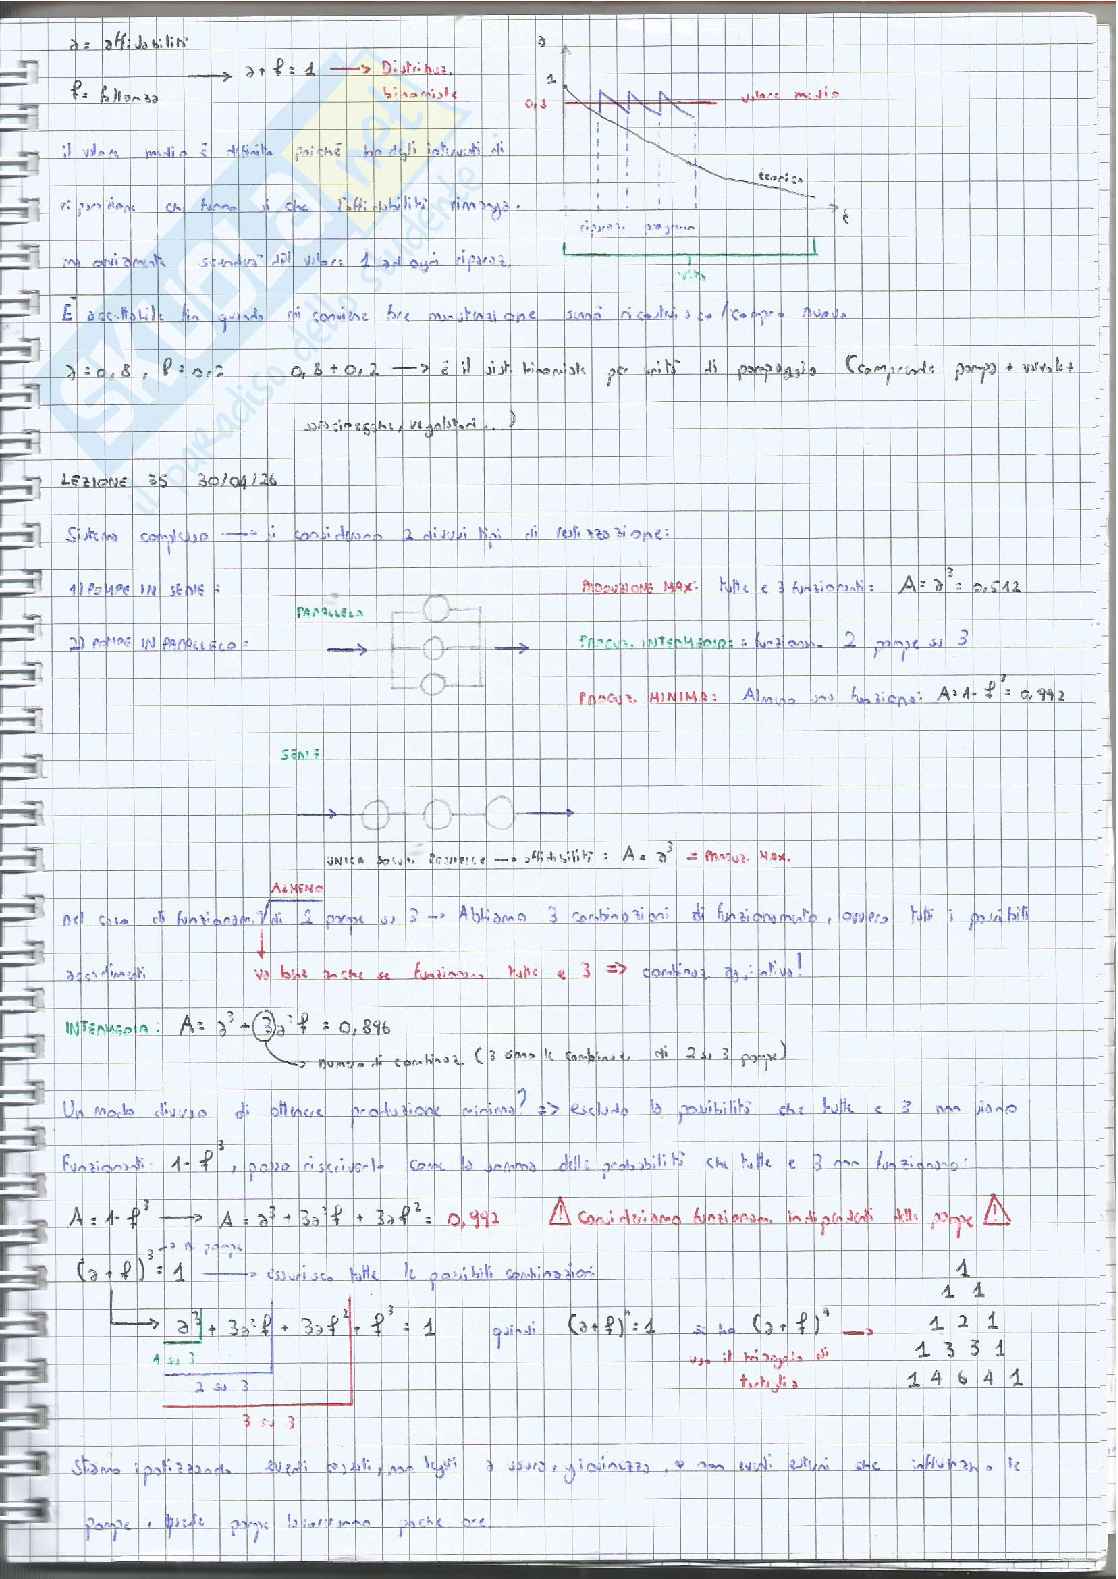 a = affidabilità
f = fallanza
→ a + f = 1 → Distribuz. binomiale
a
1
0,8
valore medio
teorico
t
riparaz. programm.
vita
il valore medio è definito poiché ho degli interventi di
riparazione che fanno sì che l'affidabilità rimanga.
ma ovviamente scenderà dal valore 1 ad ogni riparaz.
È accettabile fin quando mi conviene fare manutenzione sennò ricostruisco/compro nuovo
a = 0,8, f = 0,2 0,8 + 0,2 → è il sist. binomiale per unità di pompaggio (comprende pompa + valvole +
saracinesche, regolatori...)
LEZIONE 35 30/04/26
Sistema complesso → si considerano 2 diversi tipi di realizzazione:
1) POMPE IN SERIE:
2) POMPE IN PARALLELO:
PARALLELO
PRODUZIONE MAX: tutte e 3 funzionanti: A = a³ = 0,512
PRODUZ. INTERMEDIA: funzionan. 2 pompe su 3
PRODUZ. MINIMA: Almeno una funziona: A = 1 - f³ = 0,992
SERIE
UNICA POSSIBILE → affidabilità: A = a³ = PRODUZ. MAX.
ALMENO
nel caso di funzionam. di 2 pompe su 3 → Abbiamo 3 combinazioni di funzionamento, ovvero tutti i possibili
accadimenti
va bene anche se funzionano tutte e 3 => combinaz. aggiuntiva!
INTERMEDIA: A = a³ + 3a²f = 0,896
numero di combinaz. (3 sono le combinaz. di 2 su 3 pompe)
Un modo diverso di ottenere produzione minima? => escludo la possibilità che tutte e 3 non siano
funzionanti: 1 - f³, posso riscriverlo come la somma delle probabilità che tutte e 3 non funzionano:
A = 1 - f³ → A = a³ + 3a²f + 3af² = 0,992
! Consideriamo funzionam. indipendenti delle pompe !
(a + f)³ = 1 → esaurisco tutte le possibili combinazioni
→ n pompe
→ a³ + 3a²f + 3af² + f³ = 1 quindi (a+f)ⁿ = 1 si ha (a + f)⁴ →
1 su 3
2 su 3
3 su 3
uso il triangolo di
tartaglia
1
1 1
1 2 1
1 3 3 1
1 4 6 4 1
Stiamo ipotizzando eventi casuali, non legati a usura, giovinezza, e non eventi esterni che influenzano le
pompe. Queste pompe lavoreranno poche ore.
SKUOLA.net
il paradiso dello studente